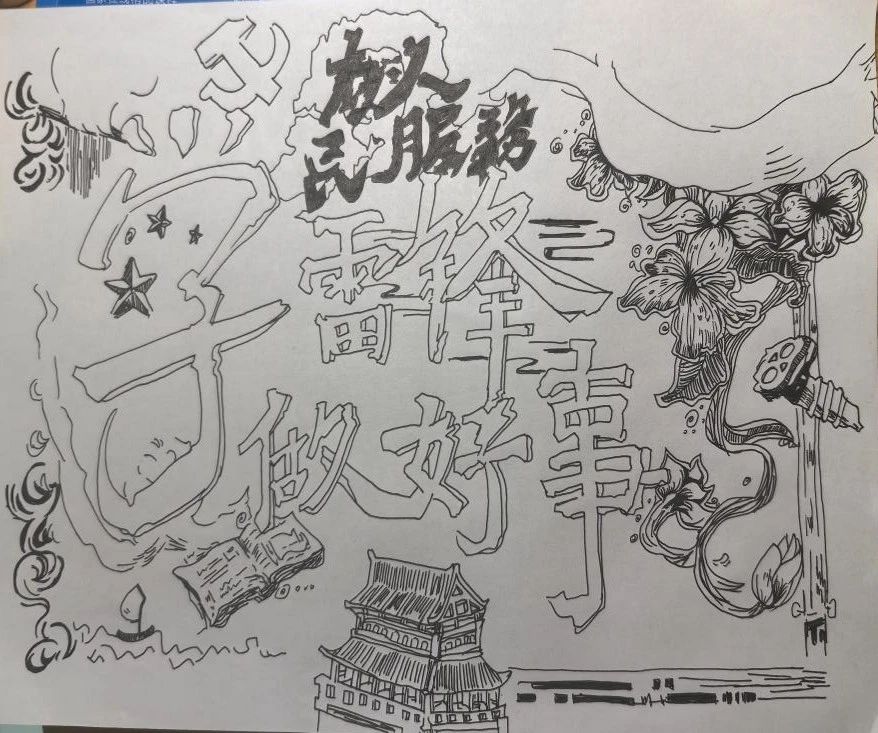 为人
民服務
学雷锋
做好事